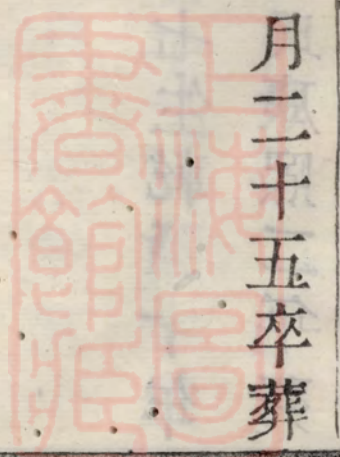 月二十五卒葬
上海圖
書館藏